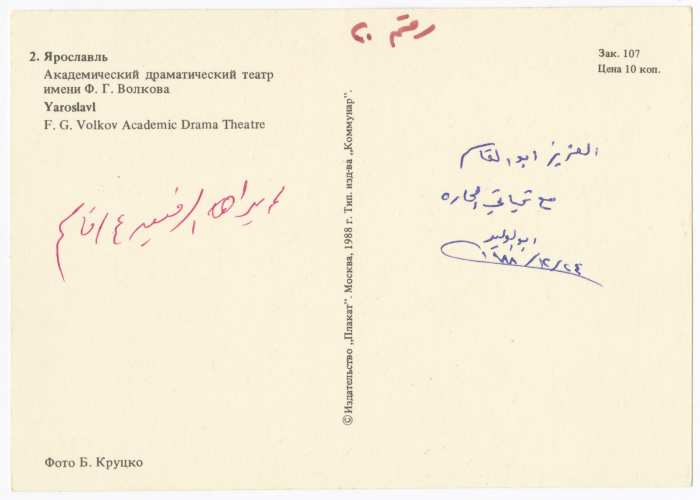 رقم ٢٠
2. Ярославль
Академический драматический театр
имени Ф. Г. Волкова
Yaroslavl
F. G. Volkov Academic Drama Theatre
Зак. 107
Цена 10 коп.
العزيز ابو القاسم
مع تحياتي الحاره
ابو الوليد
١٩٨٨/١٢/٢٤
© Издательство „Плакат“. Москва, 1988 г. Тип. изд-ва „Коммунар“.
Фото Б. Круцко